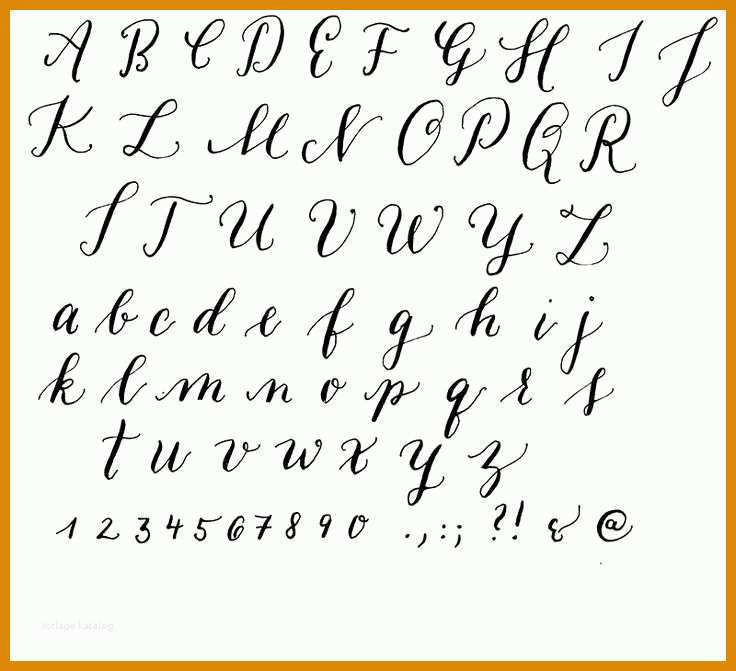 A B C D E F G H I J
K L M N O P Q R
S T U V W Y Z
a b c d e f g h i j
k l m n o p q r s
t u v w x y z
1 2 3 4 5 6 7 8 9 0 . , : ; ? ! & @
vorlage katalog